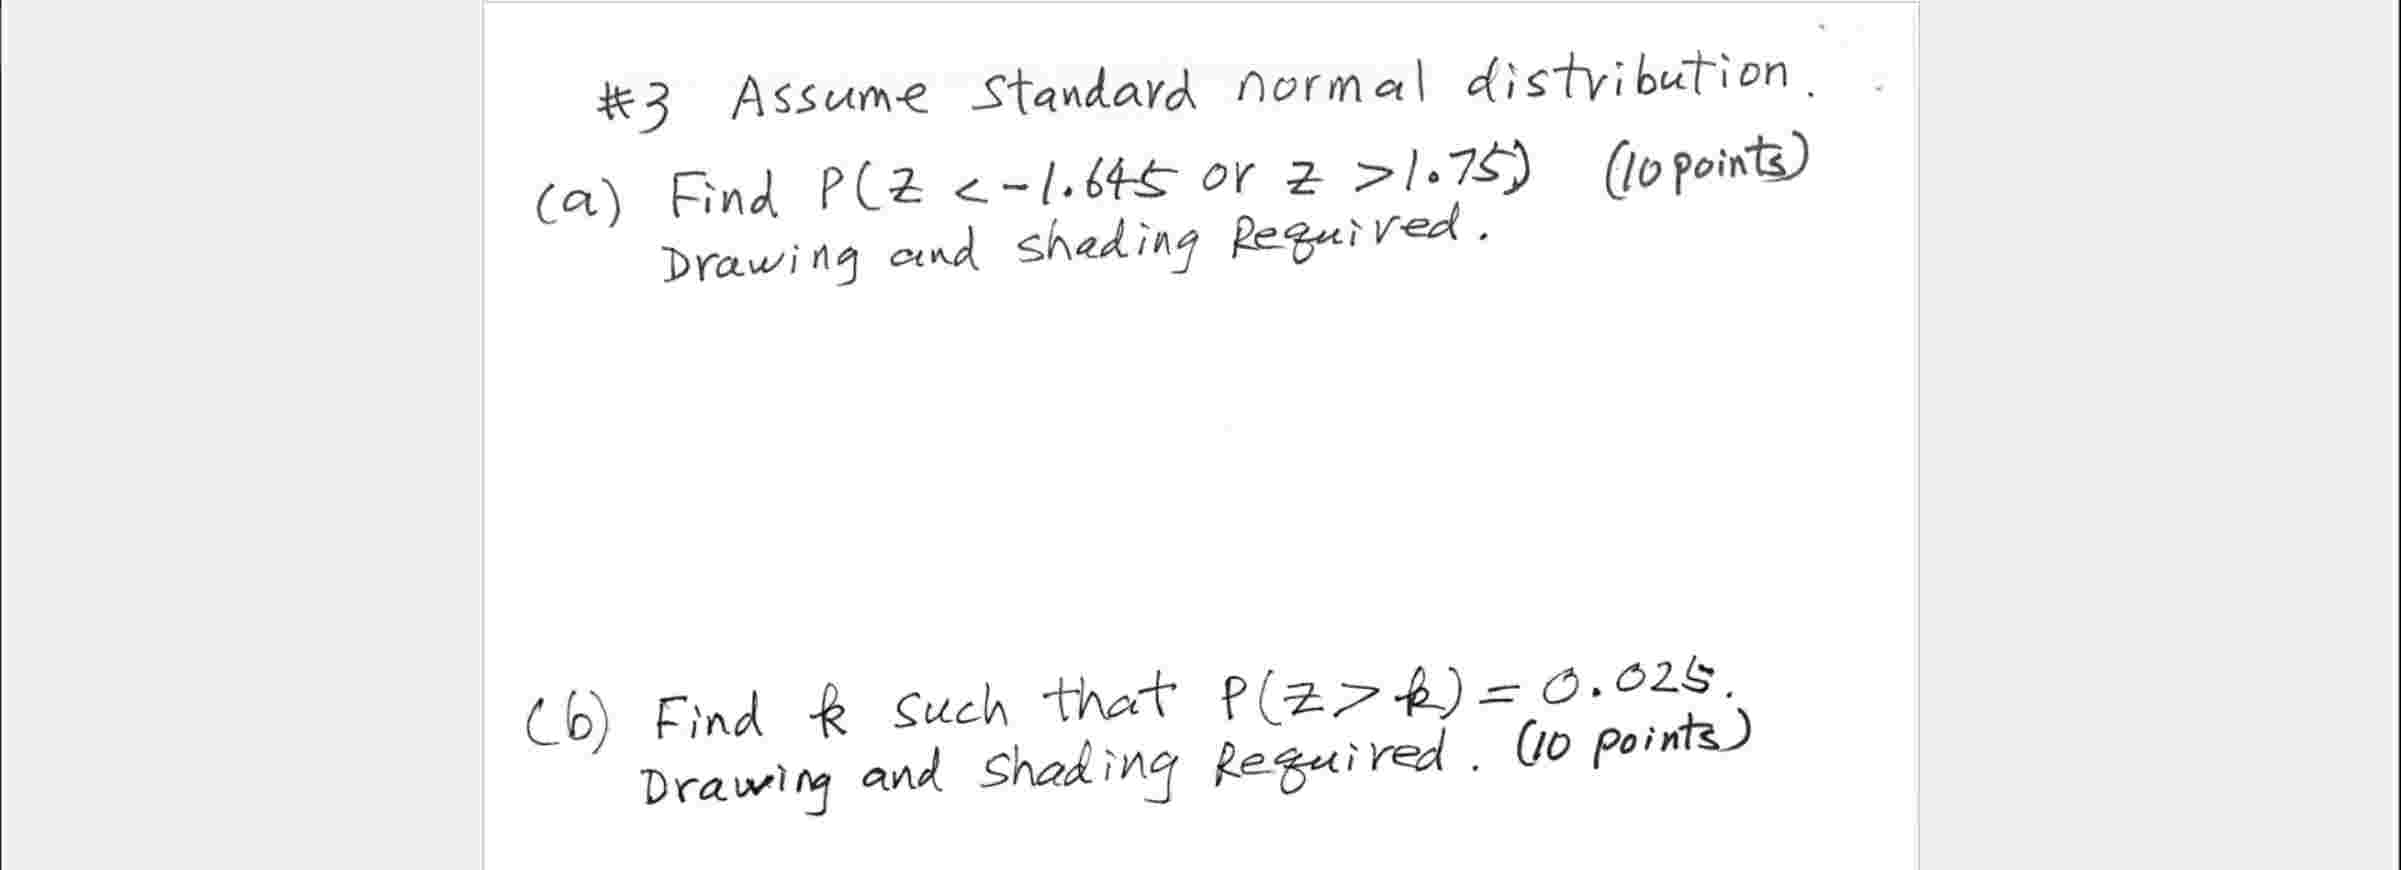 #3 Assume standard normal distribution.
(a) Find P(Z < -1.645 or z > 1.75) (10 points)
Drawing and shading Required.
(b) Find k such that P(Z > k) = 0.025.
Drawing and shading Required. (10 points)